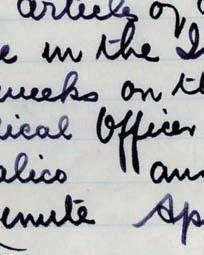 article of
e in the I
weeks on th
dical Officer
alico an
inute Sp